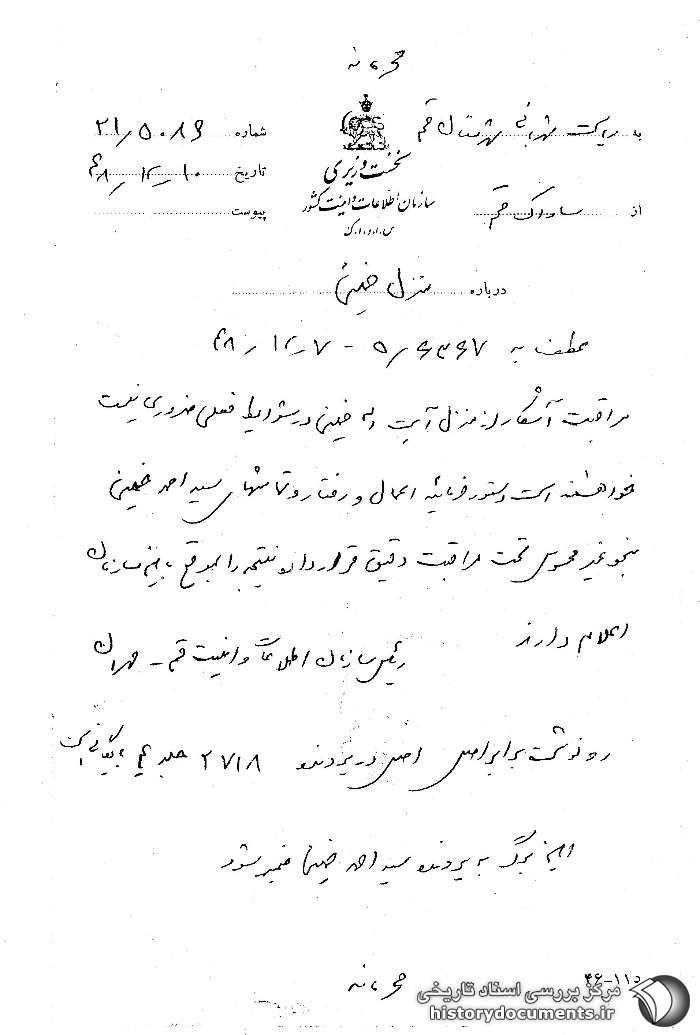 محرمانه
به ریاست شهربانی شهرستان قم
شماره ۲۱/۵۰۸۶
نخست وزیری
تاریخ ۴۸/۱۲/۱۰
سازمان اطلاعات و امنیت کشور
از ساواک قم
پیوست
س.ا.و.ا.ک
درباره منزل خمینی
عطف به ۵/۶۳۶۷ - ۴۸/۱۲/۷
مراقبت آشکار از منزل آیت اله خمینی در شرایط فعلی ضروری نیست
خواهشمند است دستور فرمائید اعمال و رفتار و تماسهای سید احمد خمینی
بنحو غیر محسوس تحت مراقبت دقیق قرار داده و نتیجه را بموقع باین سازمان
اعلام دارند
رئیس سازمان اطلاعات و امنیت قم - مهران
رونوشت برابر اصل اصل در پرونده ۲۷۱۸ جلد بایگانی است
این برگ به پرونده سید احمد خمینی ضمیمه شود
محرمانه
۴۶-۱۱۵
مرکز بررسی اسناد تاریخی
historydocuments.ir